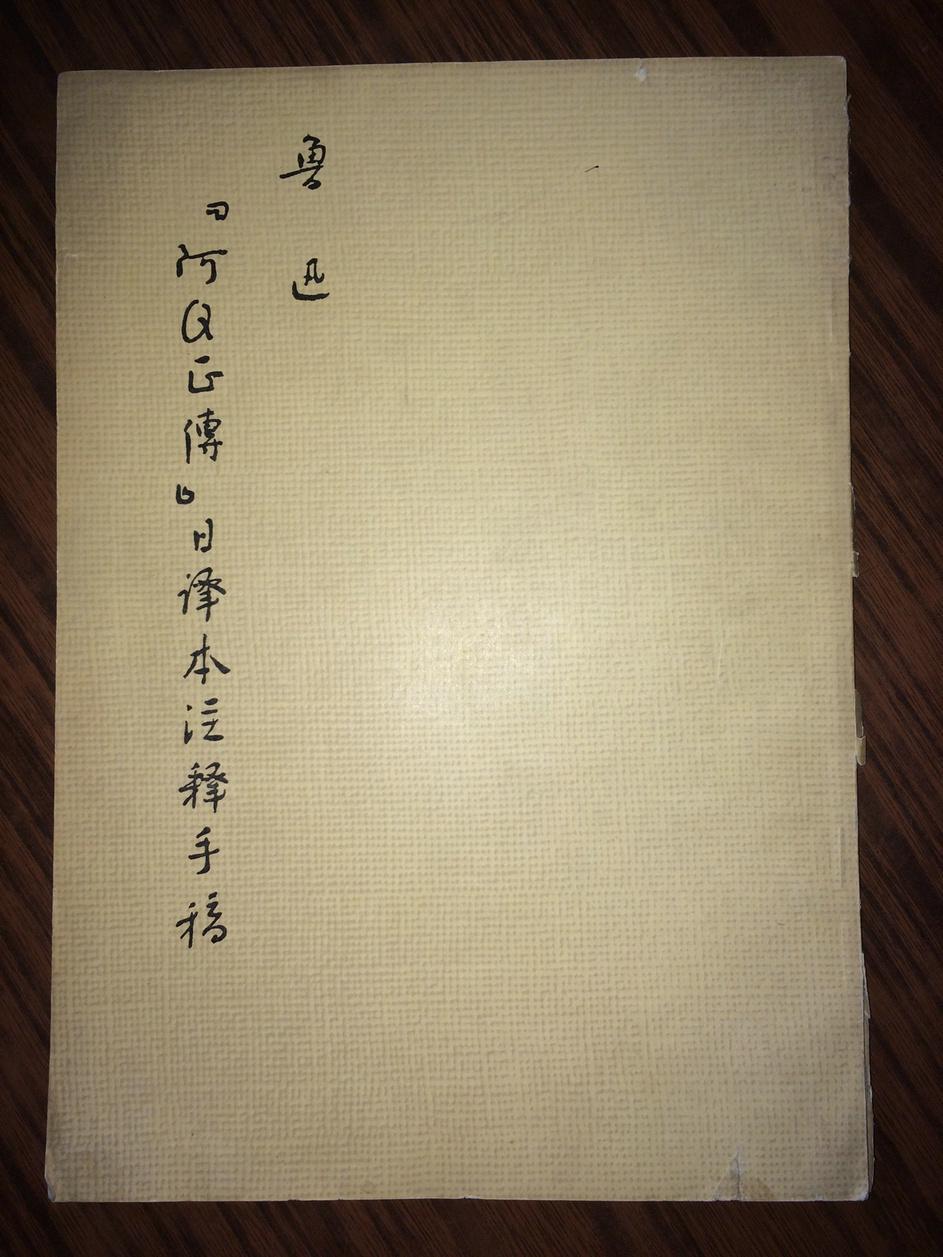 魯迅
『阿Q正傳』日译本注释手稿